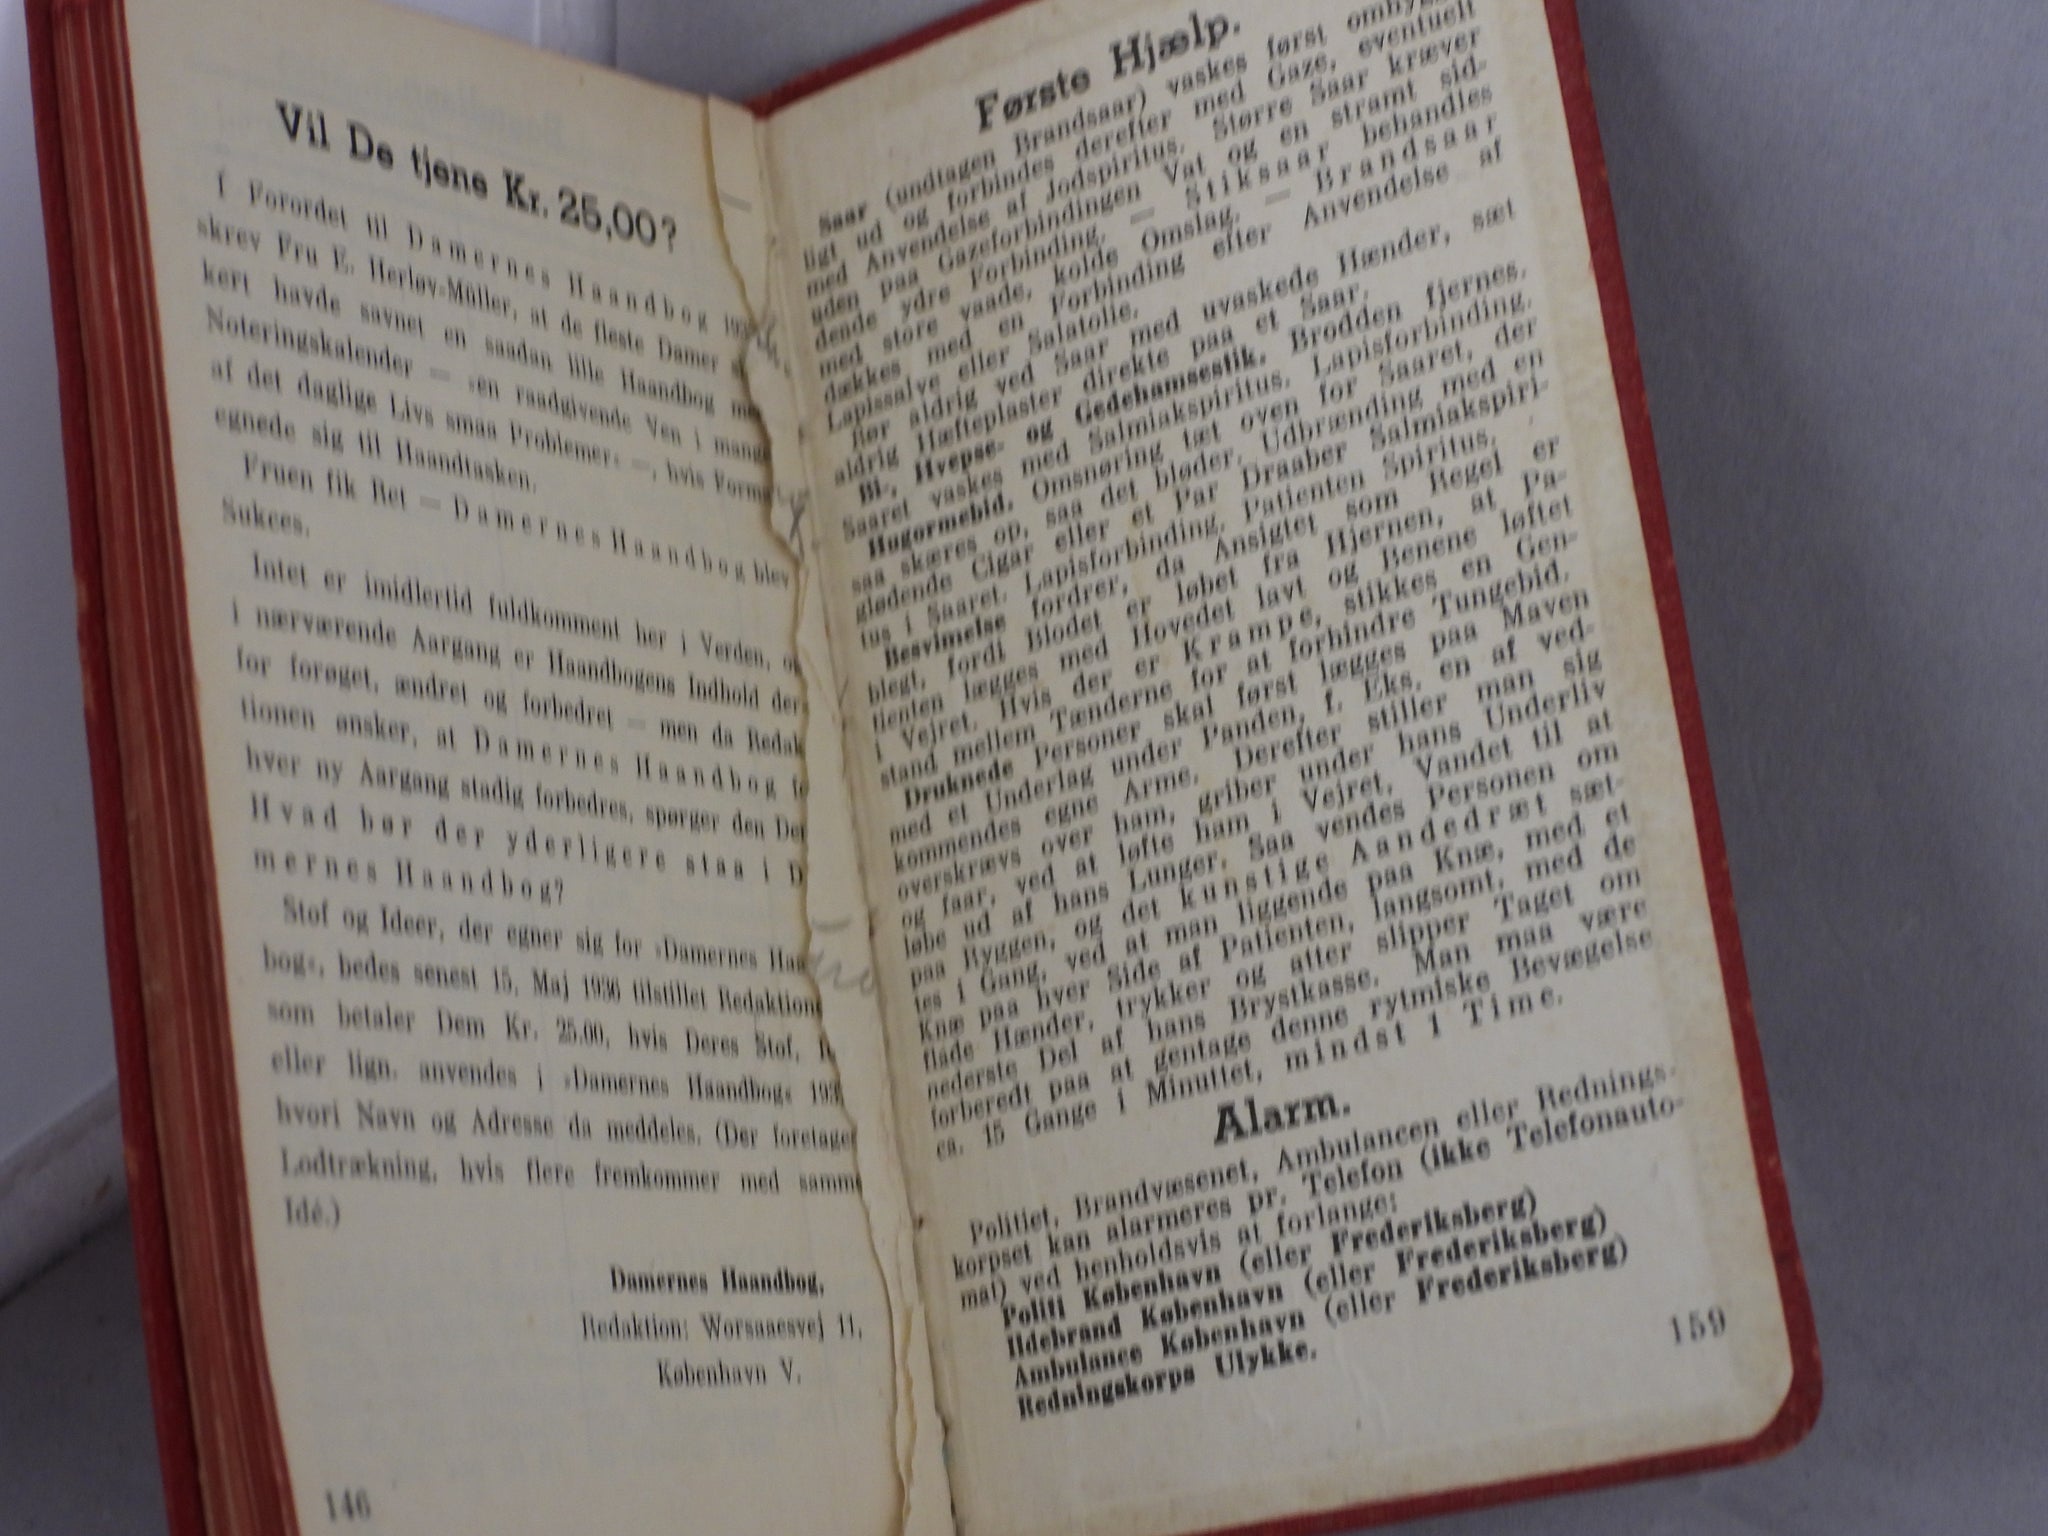 Vil De tjene Kr. 25,00?
I Forordet til Damernes Haandbog
skrev Fru E. Herløv-Müller, at de fleste Damer
kert havde savnet en saadan lille Haandbog
Noteringskalender — »en raadgivende Ven i mange
af det daglige Livs smaa Problemer« —, hvis
egnede sig til Haandtasken.
Fruen fik Ret — Damernes Haandbog blev
Sukces.
Intet er imidlertid fuldkomment her i Verden,
i nærværende Aargang er Haandbogens Indhold
for forøget, ændret og forbedret — men da Redak
tionen ønsker, at Damernes Haandbog
hver ny Aargang stadig forbedres, spørger den
Hvad bør der yderligere staa i D
mernes Haandbog?
Stof og Ideer, der egner sig for »Damernes Haa
bog«, bedes senest 15. Maj 1936 tilstillet Redaktion
som betaler Dem Kr. 25.00, hvis Deres Stof,
eller lign. anvendes i »Damernes Haandbog« 193
hvori Navn og Adresse da meddeles. (Der foretages
Lodtrækning, hvis flere fremkommer med samme
Idé.)
Damernes Haandbog,
Redaktion: Worsaaesvej 11,
København V.
146
Første Hjælp.
Saar (undtagen Brandsaar) vaskes først omhyg-
ligt ud og forbindes derefter med Gaze, eventuelt
med Anvendelse af Jodspiritus. Større Saar kræver
uden paa Gazeforbindingen Vat og en stramt sid-
dende ydre Forbinding. — Stiksaar behandles
med store vaade, kolde Omslag. — Brandsaar
dækkes med en Forbinding efter Anvendelse af
Lapissalve eller Salatolie.
Rør aldrig ved Saar med uvaskede Hænder, sæt
aldrig Hæfteplaster direkte paa et Saar.
Bi-, Hvepse- og Gedehamsestik. Brodden fjernes.
Saaret vaskes med Salmiakspiritus. Lapisforbinding.
Hugormebid. Omsnøring tæt oven for Saaret, der
saa skæres op, saa det bløder. Udbrænding med en
glødende Cigar eller et Par Draaber Salmiakspiri-
tus i Saaret. Lapisforbinding. Patienten Spiritus.
Besvimelse fordrer, da Ansigtet som Regel er
blegt, fordi Blodet er løbet fra Hjernen, at Pa-
tienten lægges med Hovedet lavt og Benene løftet
i Vejret. Hvis der er Krampe, stikkes en Gen-
stand mellem Tænderne for at forhindre Tungebid.
Druknede Personer skal først lægges paa Maven
med et Underlag under Panden, f. Eks. en af ved-
kommendes egne Arme. Derefter stiller man sig
overskrævs over ham, griber under hans Underliv
og faar, ved at løfte ham i Vejret, Vandet til at
løbe ud af hans Lunger. Saa vendes Personen om
paa Ryggen, og det kunstige Aandedræt sæt-
tes i Gang, ved at man liggende paa Knæ, med et
Knæ paa hver Side af Patienten, langsomt, med de
flade Hænder, trykker og atter slipper Taget om
nederste Del af hans Brystkasse. Man maa være
forberedt paa at gentage denne rytmiske Bevægelse
ca. 15 Gange i Minuttet, mindst 1 Time.
Alarm.
Politiet, Brandvæsenet, Ambulancen eller Rednings-
korpset kan alarmeres pr. Telefon (ikke Telefonauto-
mat) ved henholdsvis at forlange:
Politi København (eller Frederiksberg)
Ildebrand København (eller Frederiksberg)
Ambulance København (eller Frederiksberg)
Redningskorps Ulykke.
159